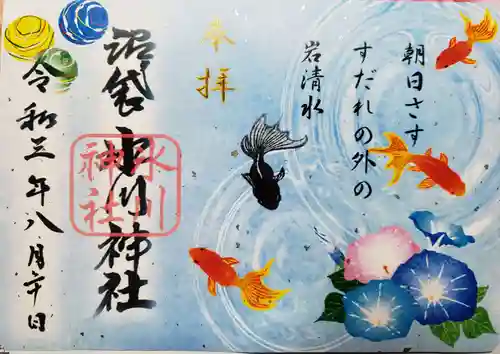 朝日さす
すだれの外の
岩清水
奉拝
沼袋氷川神社
氷川
神社
令和三年八月十日